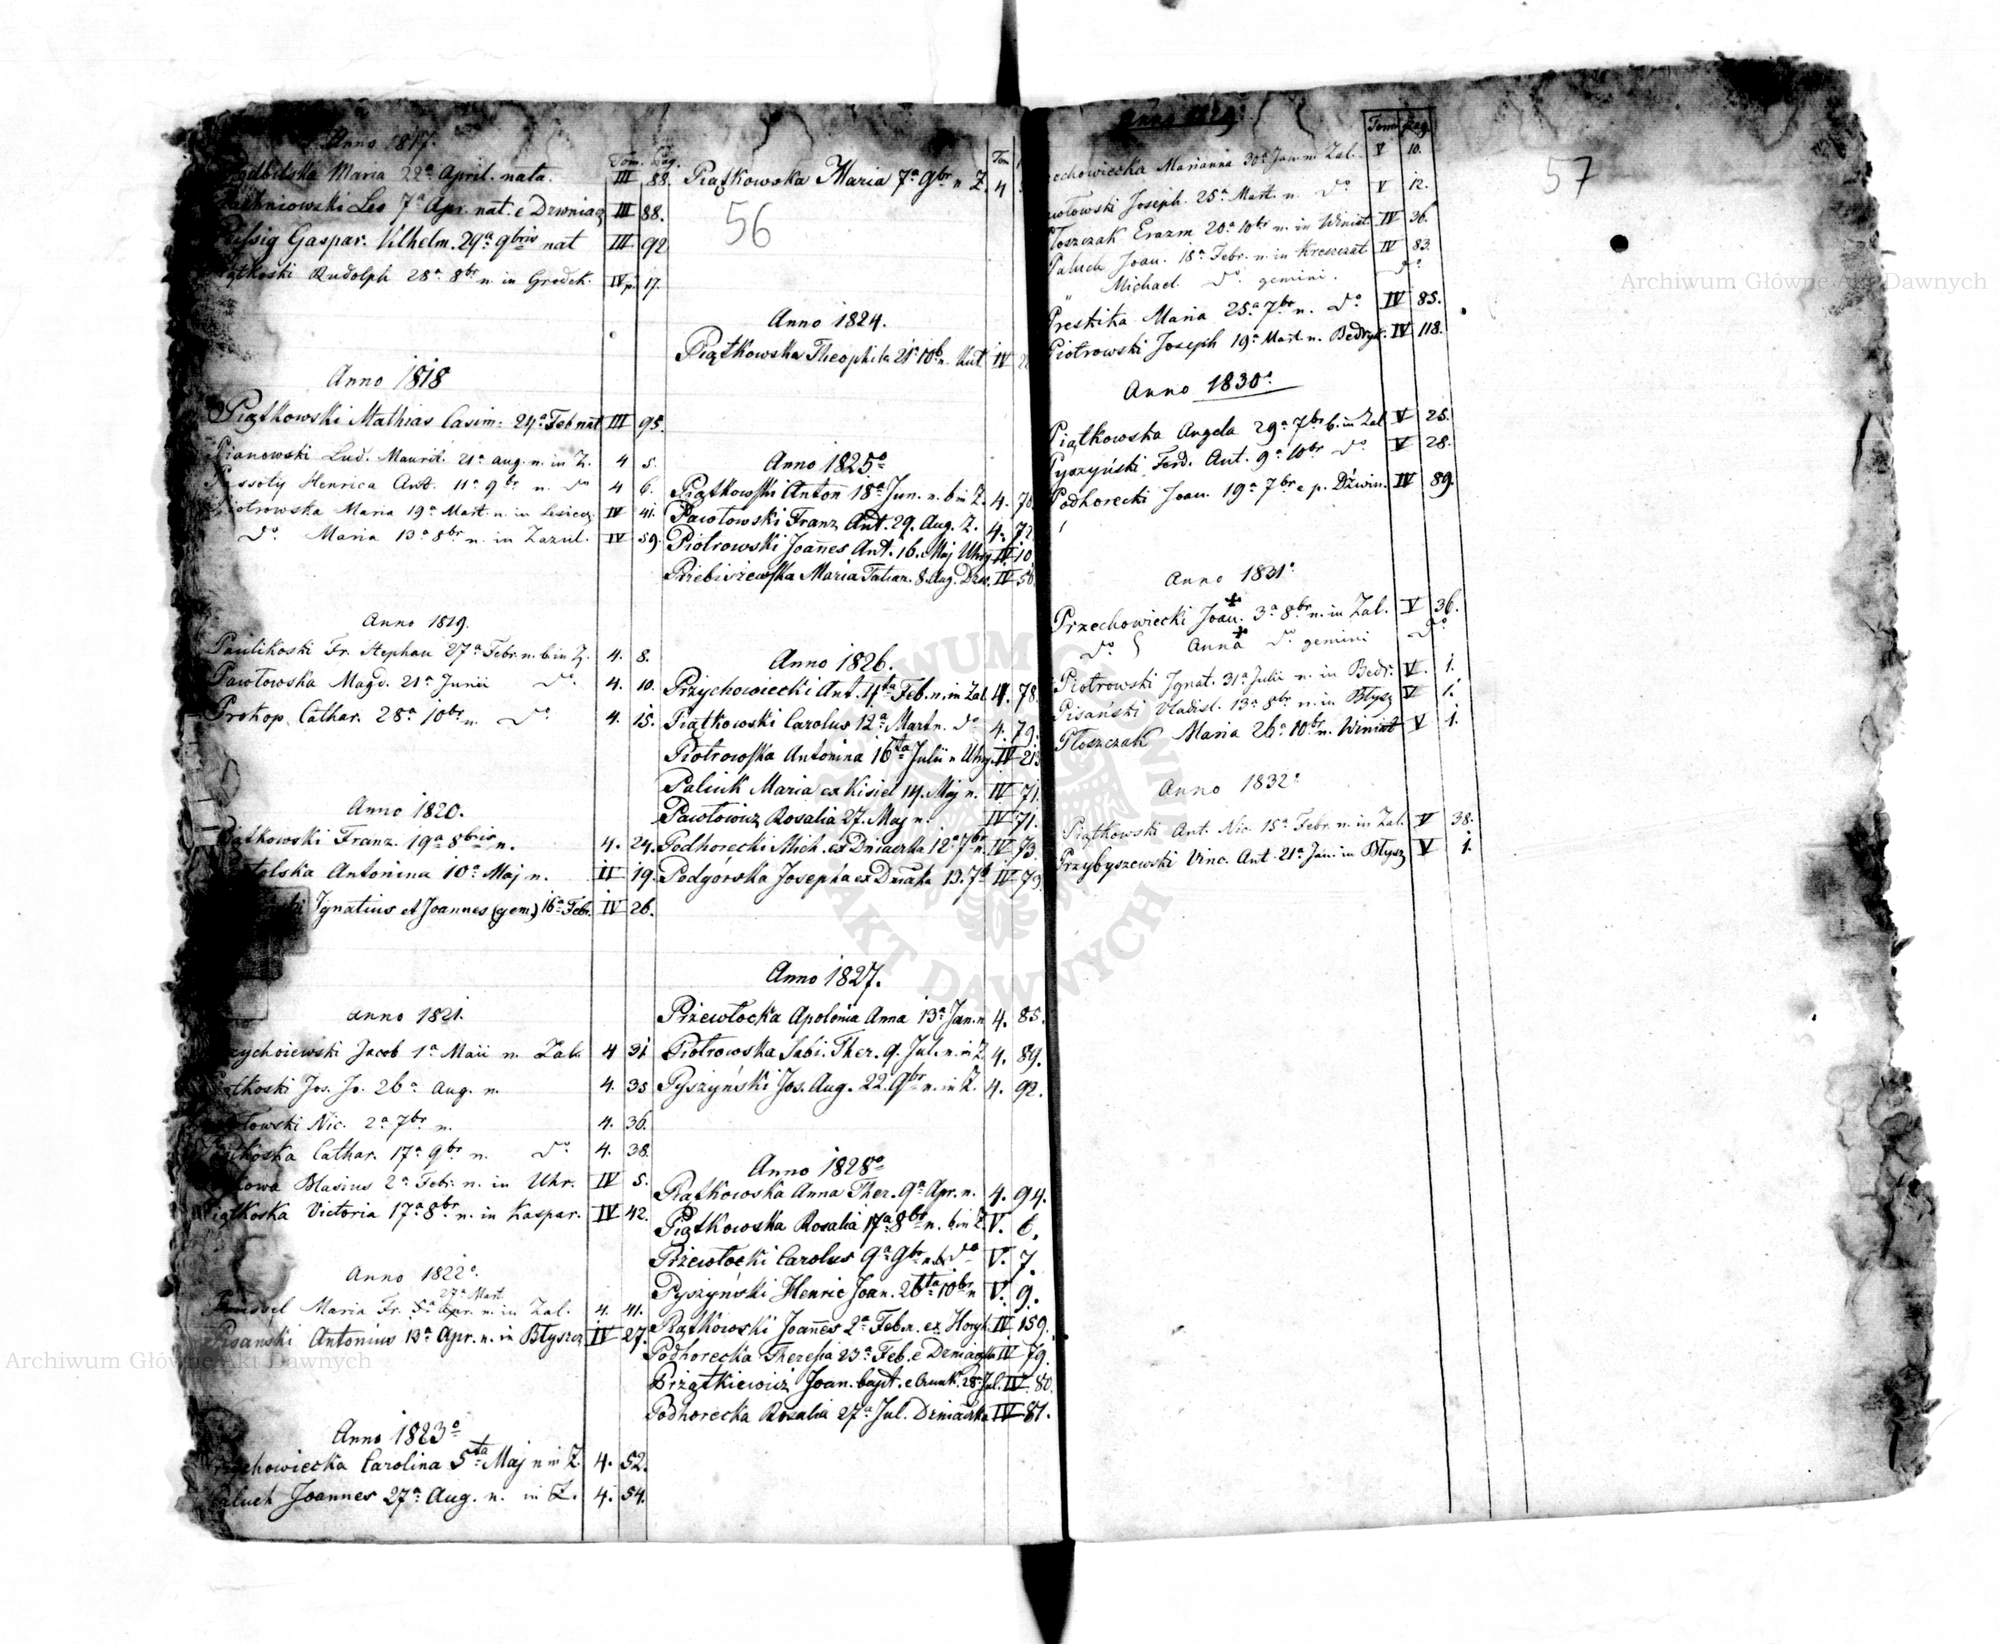 Anno 1817.
Tom. Pag.
Maria 22ª April. nata. III 88.
Leo 7ª Apr. nat. e Dzwniacz III 88.
Gaspar. Vilhelm. 29ª 9bris nat III 92
Rudolph 28ª 8br n. in Grodek. IV p. 17.
Anno 1818
Piątkowski Mathias Casim: 24ª Feb nat III 95.
Pianowski Lud. Maurit. 21ª aug. n. in Z. 4 5.
Pessoty Henrica Ant. 11ª 9br n. do 4 6.
Piotrowska Maria 19ª Mart. n. in IV 41.
do Maria 13ª 8br n. in Zazul. IV 59.
Anno 1819.
Paulikoski Fr. Stephan 27ª Febr. n. b. in Z. 4. 8.
Pawłowska Magd. 21ª Junii do 4. 10.
Prokop Cathar. 28ª 10br n. do 4. 15.
Anno 1820.
Piątkowski Franz. 19ª 8bris n. 4. 24.
Antonina 10ª Maj n. IV 19.
Ignatius et Joannes (gem.) 16ª Febr. IV 26.
anno 1821.
Jacob 1ª Maii n. Zal. 4 31
Jos. Jo. 26ª aug. n. 4. 35
Nic. 2ª 7br n. 4. 36.
Cathar. 17ª 9br n. do 4. 38.
Blasius 2ª Febr. n. in Uhr. IV 5.
Piątkoska Victoria 17ª 8br n. in Kaspar. IV 42.
Anno 1822o.
27ª Mart.
Maria Fr. 5ª Apr. n. in Zal. 4. 41.
Pisański Antonius 13ª Apr. n. in Błyszcz IV 27.
Anno 1823o
Carolina 5ta Maj n in Z. 4. 52.
Paluch Joannes 27ª Aug. n. in Z. 4. 54.
Tom
Piątkowska Maria 7ª 9br n Z. 4
56
Anno 1824.
Piątkowska Theophila 21ª 10b n. IV
Anno 1825o
Piątkowski Anton 18ª Jun. n. b in Z. 4. 70
Pawłowski Franz Ant. 29. Aug. Z. 4. 72
Piotrowski Joannes Ant. 16. Maj Uhry IV 10
Przebiszewska Maria Tatian. 8. Aug. Dzw. IV 50.
Anno 1826.
Przychowiecki Ant. 4ta Feb. n. in Zal. 4. 78.
Piątkowski Carolus 12ª Mart n. do 4. 79.
Piotrowska Antonina 16ta Julii n Uhry. IV 213
Paliuk Maria ex Kisiel 14. Maj n. IV 71.
Pawłowicz Rosalia 27. Maj n. IV 71.
Podhorecki Mich. ex Dzwiaczka 12ª 7br n. IV 73.
Podgórska Josepha ex 13. 7b IV 73.
Anno 1827.
Przewłocka Apolonia Anna 13ª Jan. n 4. 85.
Piotrowska Sabi. Ther. 9. Jul. n. in Z 4. 89.
Pyszyński Jos. Aug. 22. 9br n. in Z. 4. 92.
Anno 1828o
Piątkowska Anna Ther. 9ª Apr. n. 4. 94.
Piątkowska Rosalia 17ª 8br n. b in Z V. 6.
Przewłocki Carolus 9ª 9br n. b. do V. 7.
Pyszyński Henric Joan. 26ta 10br n V. 9.
Piątkowski Joannes 2ª Feb. n. ex IV 159.
Podhorecka Theresia 23ª Feb. e IV 79.
Przątkiewicz Joan. bapt. e 28. Jul. IV. 80.
Podhorecka Rosalia 27ª Jul. IV 81.
Anno 1829.
Tom Pag.
57
Marianna 30ª Jan. n. Zal. V 10.
Joseph. 25ª Mart. n. do V 12.
Płoszczak Erazm 20ª 10br n. in Winiat. IV 36.
Paluch Joan. 18ª Febr. n. in Kreszczat. IV 83.
" Michael. do gemini. do
Preskita Maria 25ª 7br n. do IV 85.
Piotrowski Joseph 19ª Mart. n. Bedryk. IV 118.
Anno 1830o.
Piątkowska Angela 29ª 7br b. in Zal V 25.
Pyszyński Ferd. Ant. 9ª 10br do V 28.
Podhorecki Joan. 19ª 7br e p. Dźwin. IV 89.
Anno 1831o.
Przechowiecki Joan. 3ª 8br n. in Zal. V 36.
do Anna do gemini do
Piotrowski Ignat. 31ª Julii n. in Bedr. V. 1.
Pisański Vladisl. 13ª 8br n. in Błysz V 1.
Płoszczak Maria 26ª 10br n. Winiat V 1.
Anno 1832o
Piątkowski Ant. Nic. 15ª Febr. n. in Zal. V 38.
Przybyszewski Vinc. Ant. 21ª Jan. in Błysz V 1.
Archiwum Główne Akt Dawnych
Archiwum Główne Akt Dawnych
ARCHIWUM GŁÓWNE AKT DAWNYCH